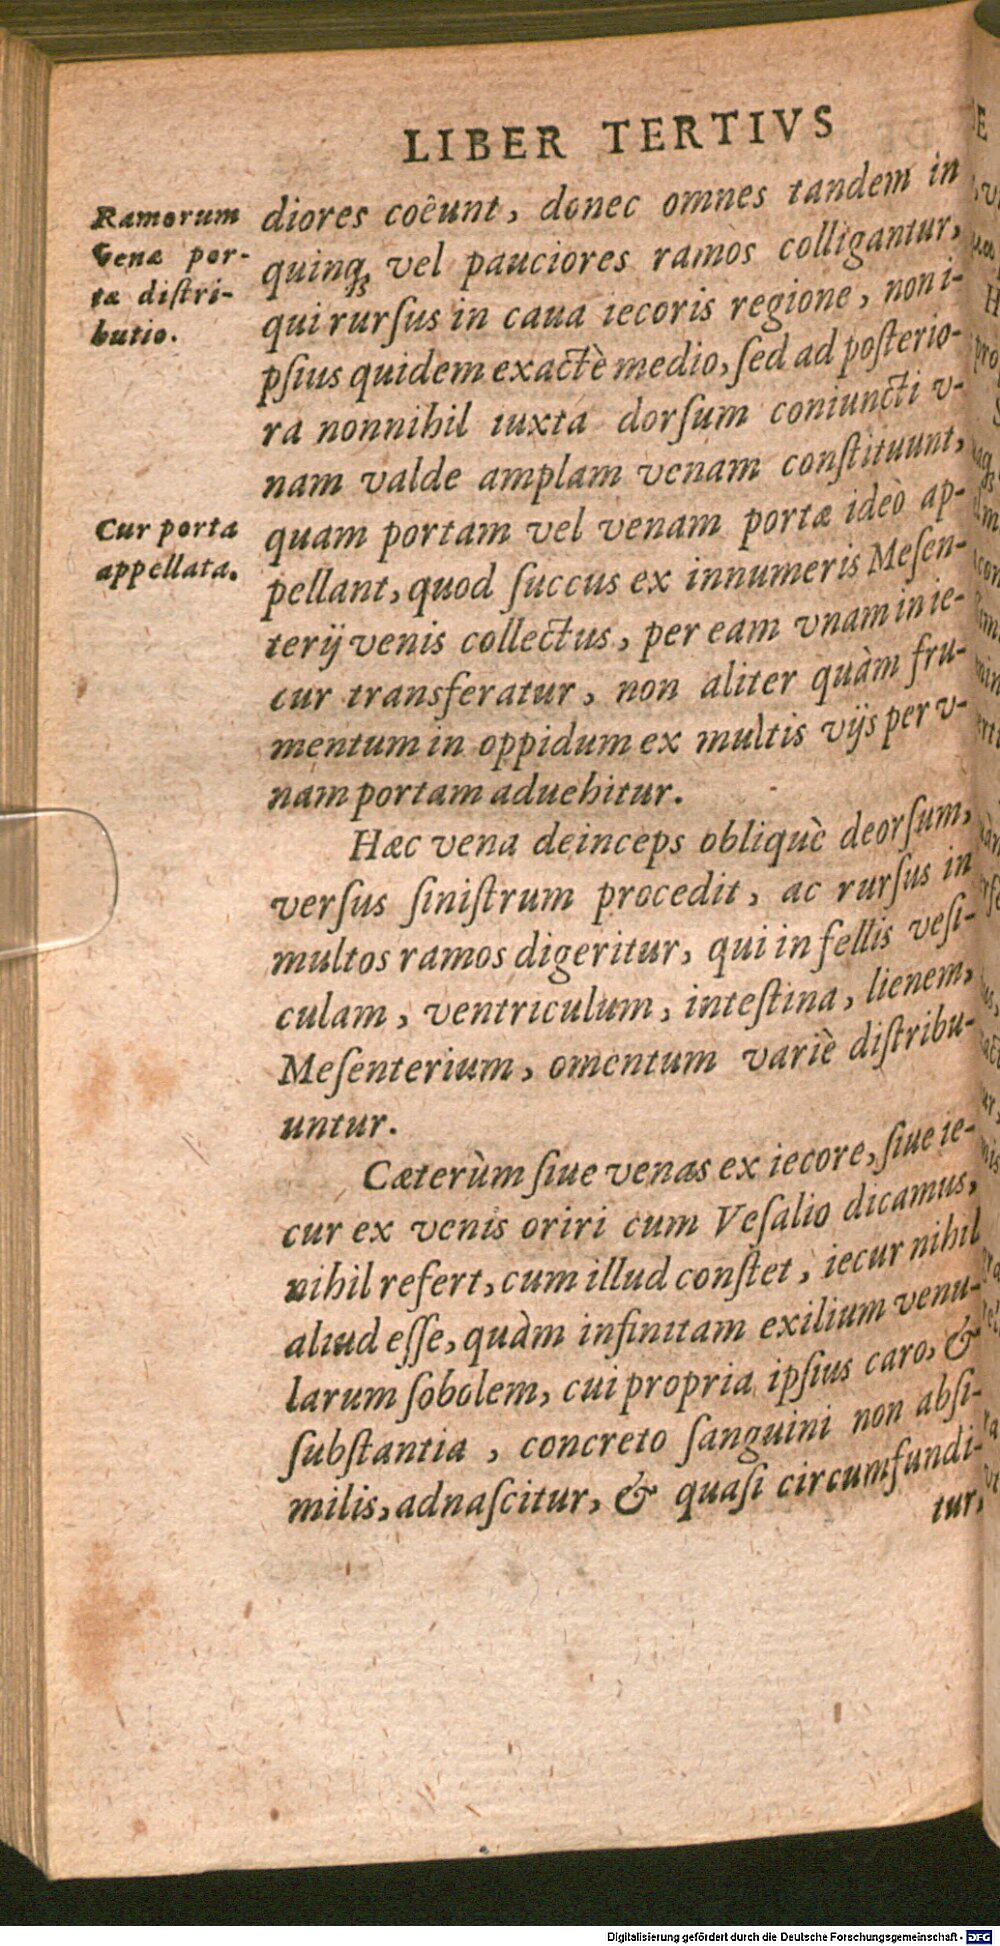 LIBER TERTIVS
Ramorum
venæ por-
tæ distri-
butio.
Cur porta
appellata.
diores coêunt, donec omnes tandem in
quinq; vel pauciores ramos colligantur,
qui rursus in caua iecoris regione, non i-
psius quidem exactè medio, sed ad posterio-
ra nonnihil iuxta dorsum coniuncti v-
nam valde amplam venam constituunt,
quam portam vel venam portæ ideò ap-
pellant, quod succus ex innumeris Mesen-
terij venis collectus, per eam vnam in ie-
cur transferatur, non aliter quàm fru-
mentum in oppidum ex multis vijs per v-
nam portam aduehitur.
Hæc vena deinceps obliquè deorsum,
versus sinistrum procedit, ac rursus in
multos ramos digeritur, qui in fellis vesi-
culam, ventriculum, intestina, lienem,
Mesenterium, omentum variè distribu-
untur.
Cæterùm siue venas ex iecore, siue ie-
cur ex venis oriri cum Vesalio dicamus,
nihil refert, cum illud constet, iecur nihil
aliud esse, quàm infinitam exilium venu-
larum sobolem, cui propria ipsius caro, &
substantia, concreto sanguini non absi-
milis, adnascitur, & quasi circumfundi-
tur,
Digitalisierung gefördert durch die Deutsche Forschungsgemeinschaft - DFG